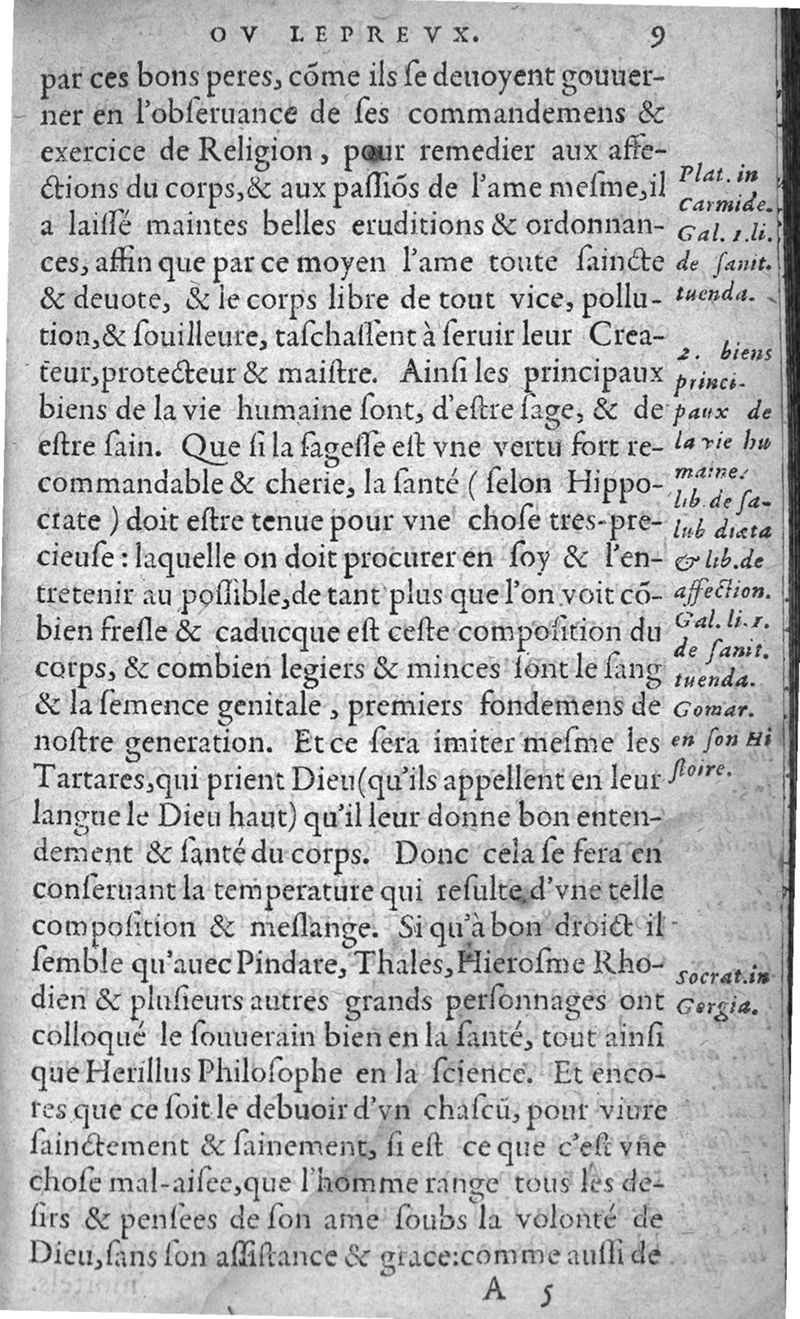 OV LEPREVX. 9
par ces bons peres, cõme ils ſe deuoyent gouuer-
ner en l'obſeruance de ſes commandemens &
exercice de Religion, pour remedier aux affe-
ctions du corps,& aux paſſiõs de l'ame meſme,il
a laiſſé maintes belles eruditions & ordonnan-
ces, affin que par ce moyen l'ame toute ſaincte
& deuote, & le corps libre de tout vice, pollu-
tion,& ſouilleure, taſchaſſent à ſeruir leur Crea-
teur,protecteur & maiſtre. Ainſi les principaux
biens de la vie humaine ſont, d'eſtre ſage, & de
eſtre ſain. Que ſi la ſageſſe eſt vne vertu fort re-
commandable & cherie, la ſanté ( ſelon Hippo-
crate ) doit eſtre tenue pour vne choſe tres-pre-
cieuſe : laquelle on doit procurer en ſoy & l'en-
tretenir au poſſible,de tant plus que l'on voit cõ-
bien freſle & caducque eſt ceſte compoſition du
corps, & combien legiers & minces ſont le ſang
& la ſemence genitale , premiers fondemens de
noſtre generation. Et ce ſera imiter meſme les
Tartares,qui prient Dieu(qu'ils appellent en leur
langue le Dieu haut) qu'il leur donne bon enten-
dement & ſanté du corps. Donc cela ſe fera en
conſeruant la temperature qui reſulte d'vne telle
compoſition & meſlange. Si qu'à bon droict il
ſemble qu'auec Pindare, Thales, Hieroſme Rho-
dien & pluſieurs autres grands perſonnages ont
colloqué le ſouuerain bien en la ſanté, tout ainſi
que Herillus Philoſophe en la ſcience. Et enco-
res que ce ſoit le debuoir d'vn chaſcũ, pour viure
ſainctement & ſainement, ſi eſt ce que c'eſt vne
choſe mal-aiſee,que l'homme range tous les de-
ſirs & penſees de ſon ame ſoubs la volonté de
Dieu,ſans ſon aſſiſtance & grace:comme auſſi de
A 5
Plat. in
Carmide.
Gal. 1.li.
de ſanit.
tuenda.
2. biens
princi-
paux de
la vie hu
maine.
lib.de ſa-
lub diæta
& lib.de
affection.
Gal. li.1.
de ſanit.
tuenda.
Gomar.
en ſon Hi
ſtoire.
Socrat.in
Gorgia.